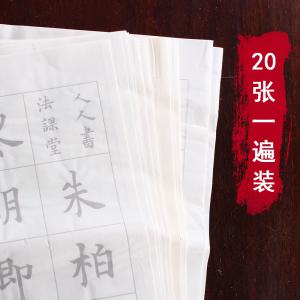 20
张
一
遍
装
人人書
法課堂
朱
柏
朋
即